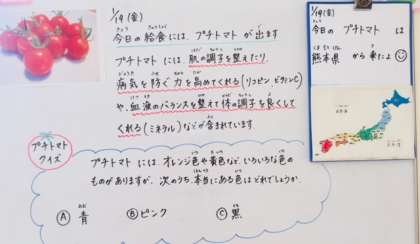 1/19(金)
今日の給食には、プチトマトが出ます
プチトマトには 肌の調子を整えたり、
病気を防ぐ力を高めてくれる(リコピン ビタミンC)
や、血液のバランスを整えて体の調子を良くして
くれる(ミネラル)などが含まれています。
プチトマト
クイズ
プチトマトにはオレンジ色や黄色など、いろいろな色の
ものがありますが、次のうち、本当にある色はどれでしょうか。
Ⓐ 青
Ⓑ ピンク
Ⓒ 黒
1/19(金)
今日の プチトマト は
熊本県 から来たよ